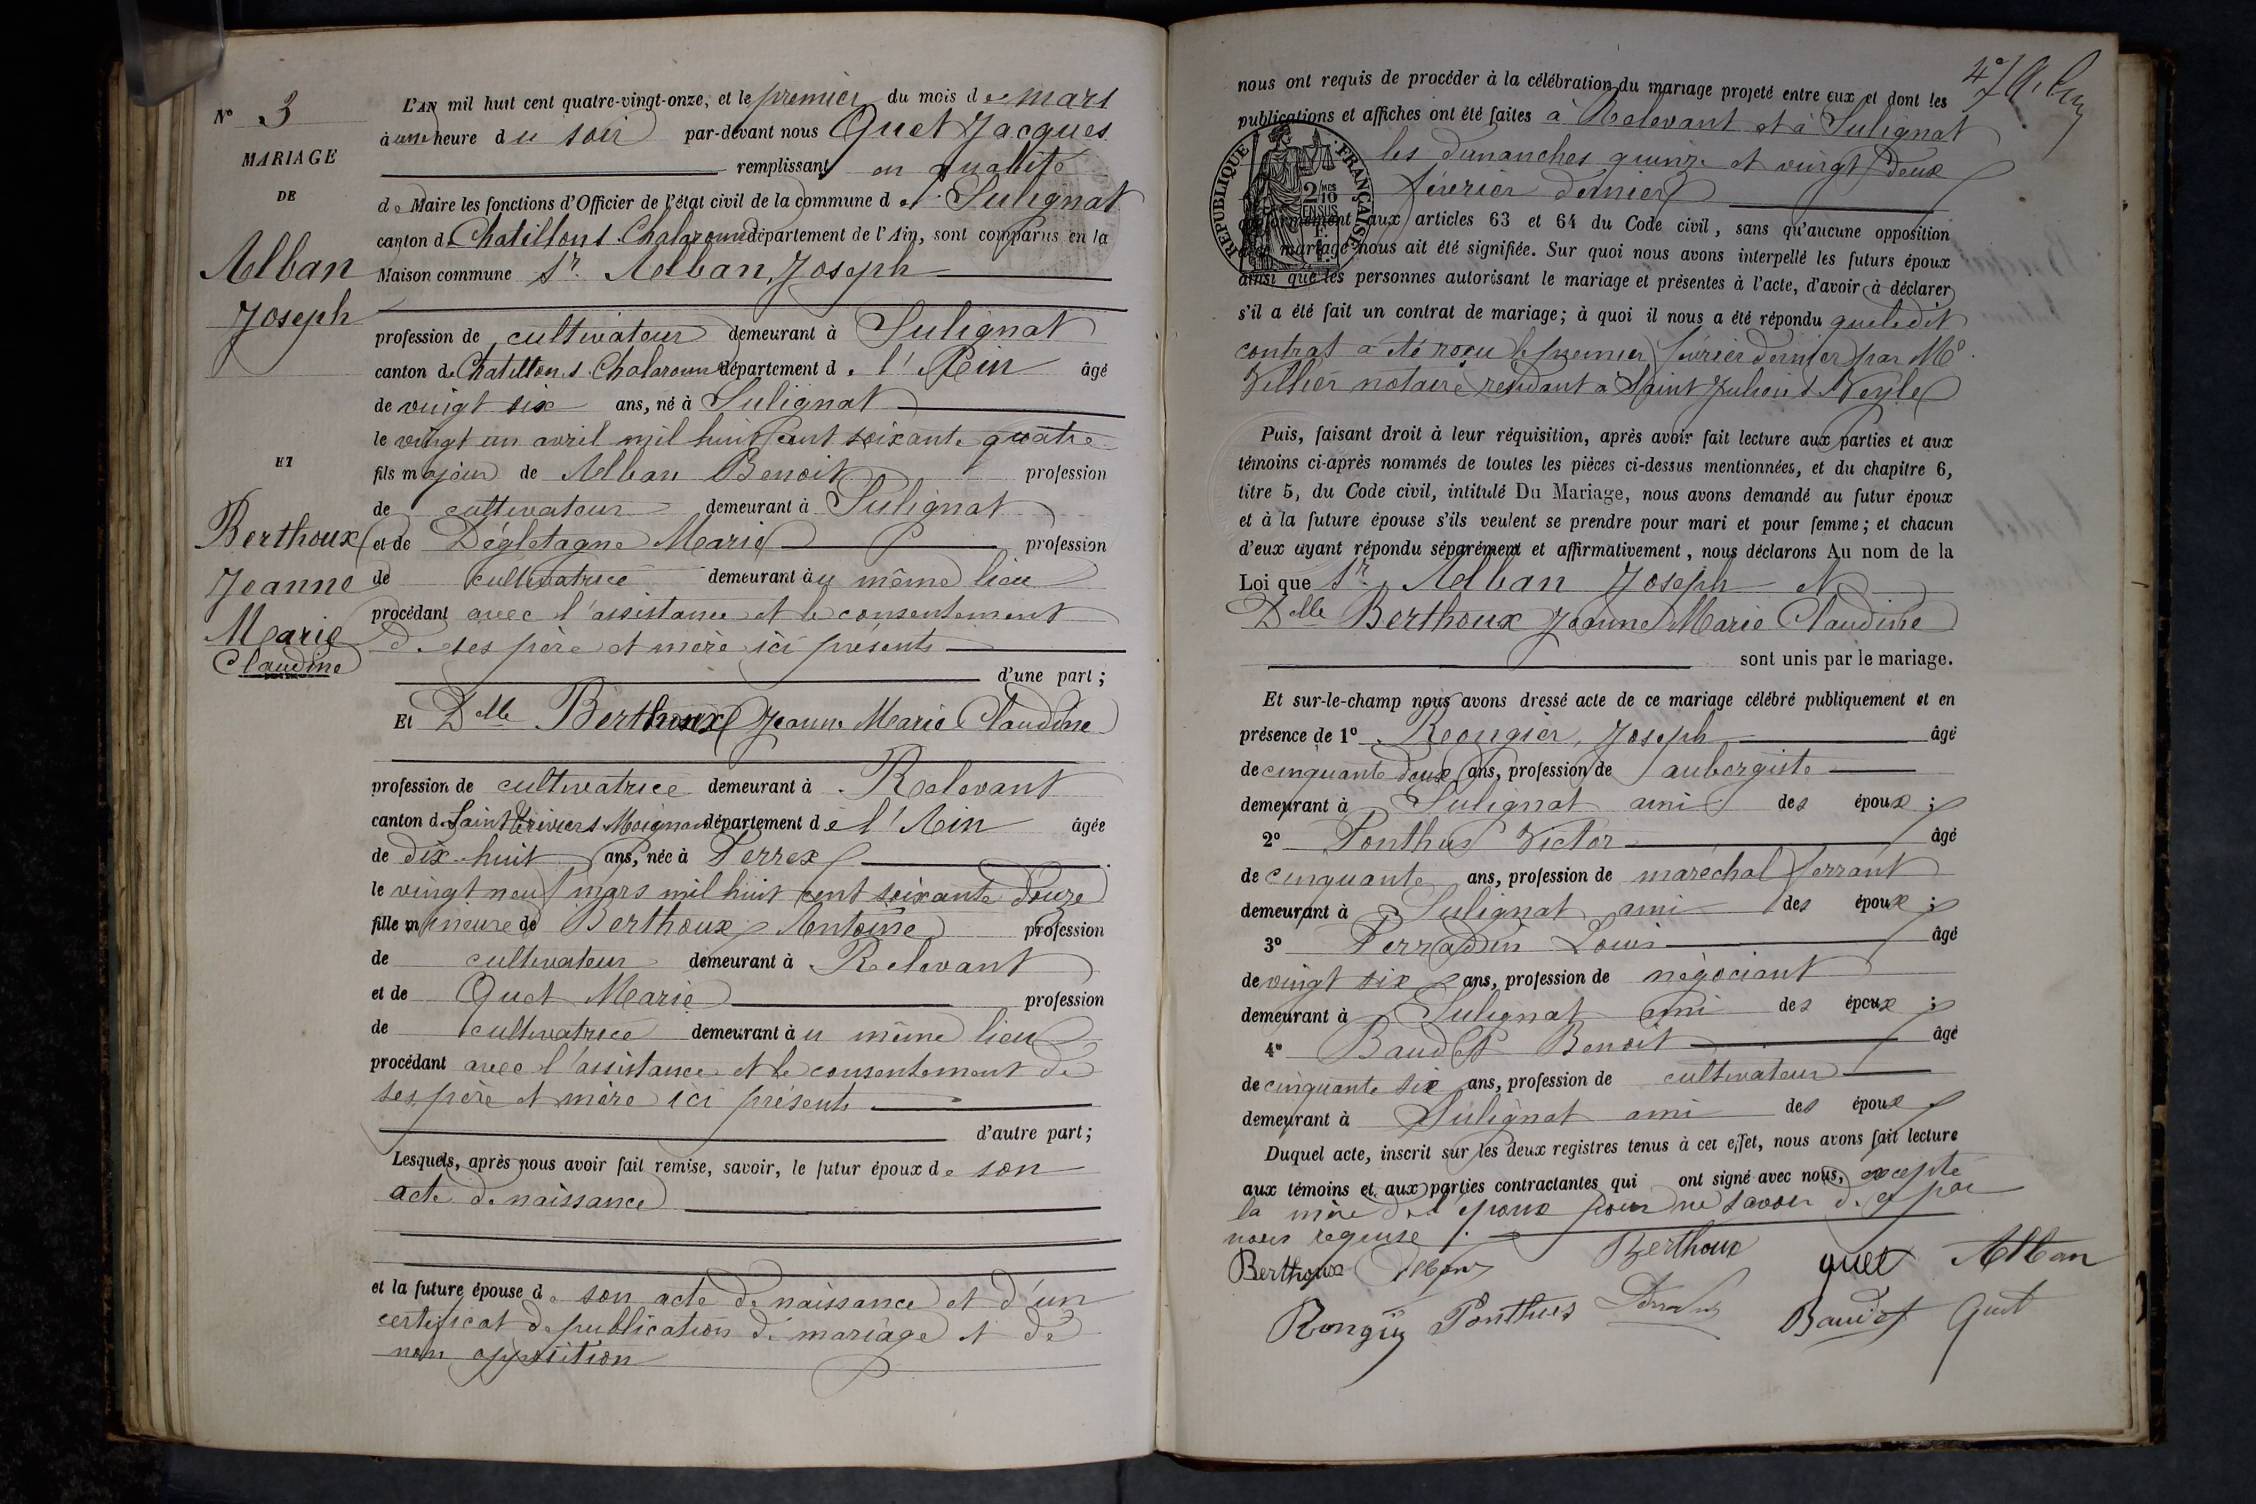 N° 3
MARIAGE
DE
Alban
Joseph
ET
Berthoux
Jeanne
Marie
Claudine
L'AN mil huit cent quatre-vingt-onze, et le premier du mois de mars
à une heure du soir par-devant nous Quet Jacques
remplissant en qualité
de Maire les fonctions d'Officier de l'état civil de la commune de Sulignat
canton de Chatillon s. Chalaronne département de l'Ain, sont comparus en la
Maison commune Sr. Alban, Joseph
profession de cultivateur demeurant à Sulignat
canton de Chatillon s. Chalaronne département de l'Ain âgé
de vingt six ans, né à Sulignat
le vingt un avril mil huit cent soixante quatre
fils majeur de Alban Benoit profession
de cultivateur demeurant à Sulignat
et de Dégletagne Marie profession
de cultivatrice demeurant au même lieu
procédant avec l'assistance et le consentement
de ses père et mère ici présents
d'une part ;
Et Delle Berthoux Jeanne Marie Claudine
profession de cultivatrice demeurant à Relevant
canton de Saint Trivier s Moignans département de l'Ain âgée
de dix-huit ans, née à Perrex
le vingt neuf mars mil huit cent soixante douze
fille mineure de Berthoux Antoine profession
de cultivateur demeurant à Relevant
et de Quet Marie profession
de cultivatrice demeurant au même lieu
procédant avec l'assistance et le consentement de
ses père et mère ici présents
d'autre part ;
Lesquels, après nous avoir fait remise, savoir, le futur époux de son
acte de naissance
et la future épouse de son acte de naissance et d'un
certificat de publication de mariage et de
non opposition
nous ont requis de procéder à la célébration du mariage projeté entre eux et dont les
publications et affiches ont été faites à Relevant et à Sulignat
les dimanches quinze et vingt deux
février dernier
RÉPUBLIQUE FRANÇAISE
2/10 EN SUS
conformément aux articles 63 et 64 du Code civil, sans qu'aucune opposition
mariage nous ait été signifiée. Sur quoi nous avons interpellé les futurs époux
ainsi que les personnes autorisant le mariage et présentes à l'acte, d'avoir à déclarer
s'il a été fait un contrat de mariage ; à quoi il nous a été répondu que ledit
contrat a été reçu le premier février dernier par Me
Villier notaire résidant à Saint Julien s. Veyle
Puis, faisant droit à leur réquisition, après avoir fait lecture aux parties et aux
témoins ci-après nommés de toutes les pièces ci-dessus mentionnées, et du chapitre 6,
titre 5, du Code civil, intitulé Du Mariage, nous avons demandé au futur époux
et à la future épouse s'ils veulent se prendre pour mari et pour femme ; et chacun
d'eux ayant répondu séparément et affirmativement, nous déclarons Au nom de la
Loi que Sr. Alban Joseph et
Delle Berthoux Jeanne Marie Claudine
sont unis par le mariage.
Et sur-le-champ nous avons dressé acte de ce mariage célébré publiquement et en
présence de 1° Rongier, Joseph âgé
de cinquante deux ans, profession de aubergiste
demeurant à Sulignat ami des époux ;
2° Ponthus Victor âgé
de cinquante ans, profession de maréchal ferrant
demeurant à Sulignat ami des époux ;
3° Perradin Louis âgé
de vingt six ans, profession de négociant
demeurant à Sulignat ami des époux ;
4° Baudet Benoit âgé
de cinquante six ans, profession de cultivateur
demeurant à Sulignat ami des époux
Duquel acte, inscrit sur les deux registres tenus à cet effet, nous avons fait lecture
aux témoins et aux parties contractantes qui ont signé avec nous, excepté
la mère de l'époux pour ne savoir de ce par
nous requise.
Berthoux Alban Berthoux quet Alban
Rongier Ponthus Baudet Quet